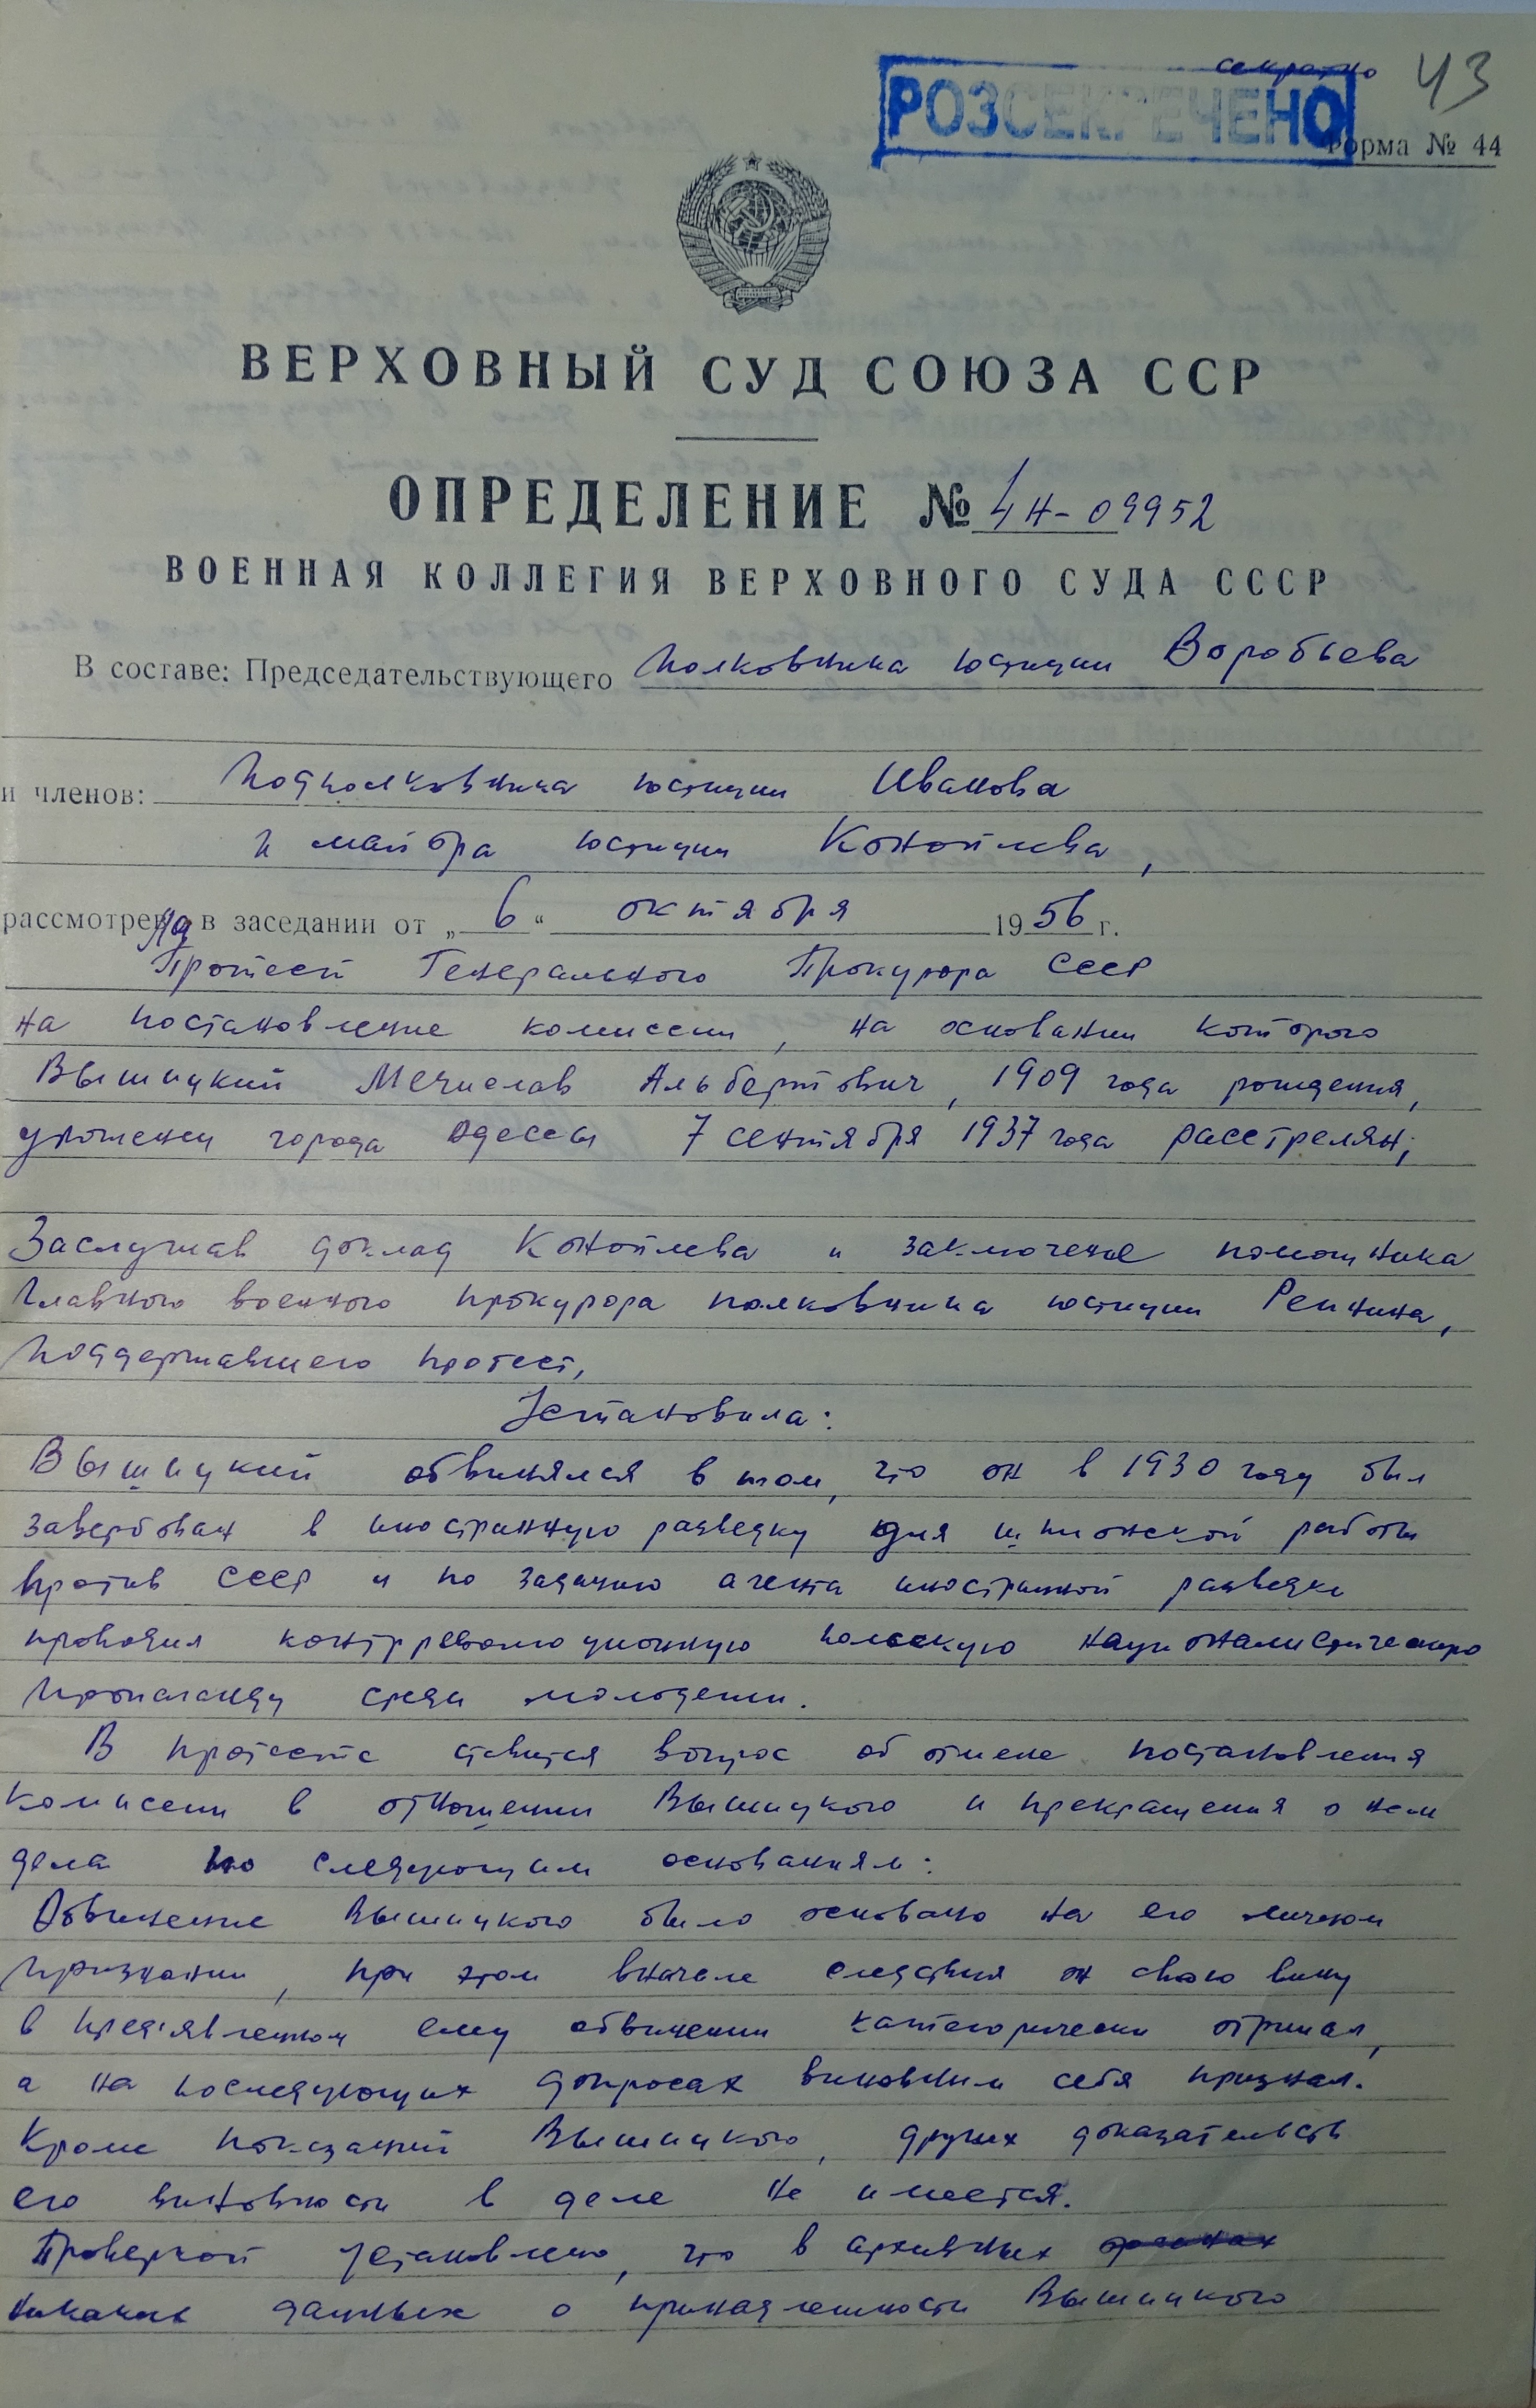 секретно
43
РОЗСЕКРЕЧЕНО
Форма № 44
ВЕРХОВНЫЙ СУД СОЮЗА ССР
ОПРЕДЕЛЕНИЕ № 4н-09952
ВОЕННАЯ КОЛЛЕГИЯ ВЕРХОВНОГО СУДА СССР
В составе: Председательствующего полковника юстиции Воробьева
и членов: подполковника юстиции Иванова
и майора юстиции Коноплева,
рассмотрела в заседании от „6“ октября 1956 г.
Протест Генерального Прокурора СССР
на постановление комиссии, на основании которого
Вышицкий Мечислав Альбертович, 1909 года рождения,
уроженец города Одессы 7 сентября 1937 года расстрелян;
Заслушав доклад Коноплева и заключение помощника
Главного военного прокурора полковника юстиции Репнина,
поддержавшего протест,
Установила:
Вышицкий обвинялся в том, что он в 1930 году был
завербован в иностранную разведку для шпионской работы
против СССР и по заданию агента иностранной разведки
проводил контрреволюционную польскую националистическую
пропаганду среди молодежи.
В протесте ставится вопрос об отмене постановления
комиссии в отношении Вышицкого и прекращения о нем
дела по следующим основаниям:
Обвинение Вышицкого было основано на его личном
признании, при этом вначале следствия он свою вину
в пред'явленном ему обвинении категорически отрицал,
а на последующих допросах виновным себя признал.
Кроме показаний Вышицкого, других доказательств
его виновности в деле не имеется.
Проверкой установлено, что в архивных
никаких данных о принадлежности Вышицкого